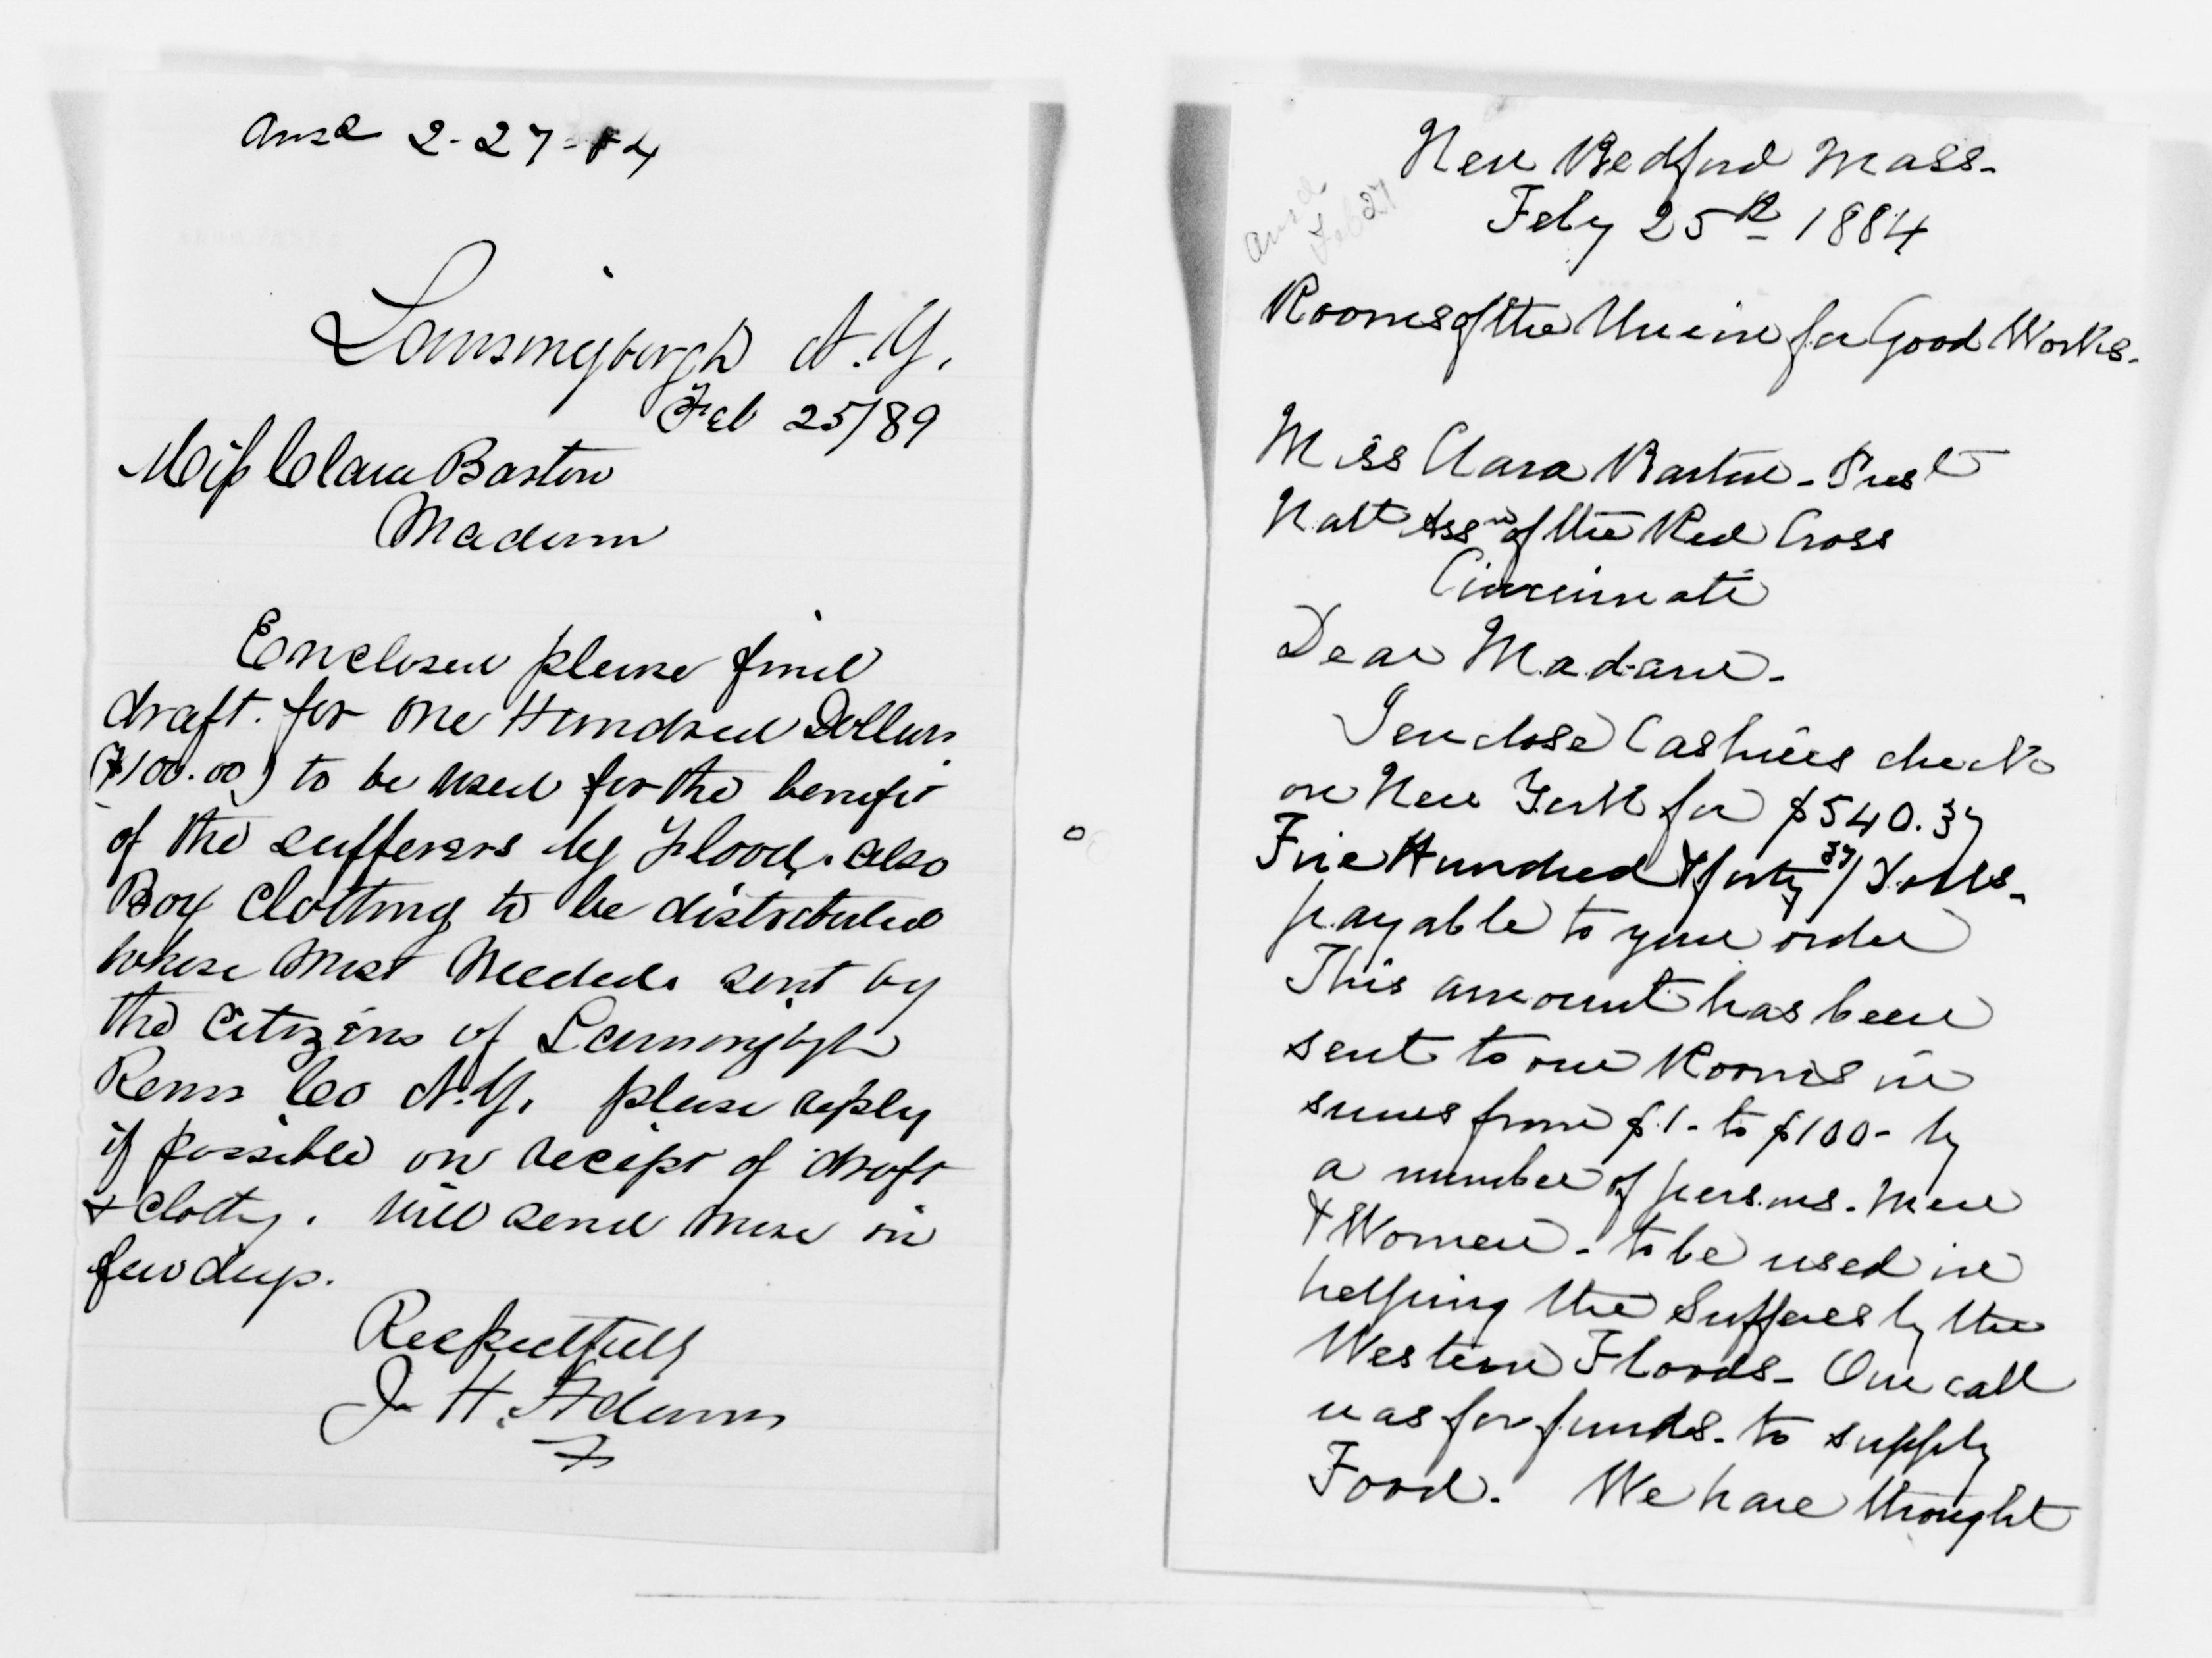 Ansd 2-27-84
Lansingburgh N.Y.
Feb 25/89
Miss Clara Barton
Madam
Enclosed please find
draft. for one Hundred Dollars
($100.00) to be used for the benefit
of the sufferers by Flood. also
Box Clothing to be distributed
where most Needed. sent by
the Citizens of Lansingbgh
Renss Co N.Y. please reply
if possible on receipt of draft
& Clothg. will send more in
few days.
Respectfully
J. H. Adams
Ansd
Feb 27
New Bedford Mass-
Feby 25th 1884
Rooms of the Union for Good Works-
Miss Clara Barton - Prest
Natl Assn of the Red Cross
Cincinnati
Dear Madam-
I enclose Cashiers check
on New York for $540.37
Five Hundred & forty 37/ Dolls-
payable to your order
This amount has been
sent to our Rooms in
sums from $1- to $100- by
a number of persons. Men
& Women - to be used in
helping the Sufferers by the
Western Floods- Our call
was for funds- to supply
Food. We have thought